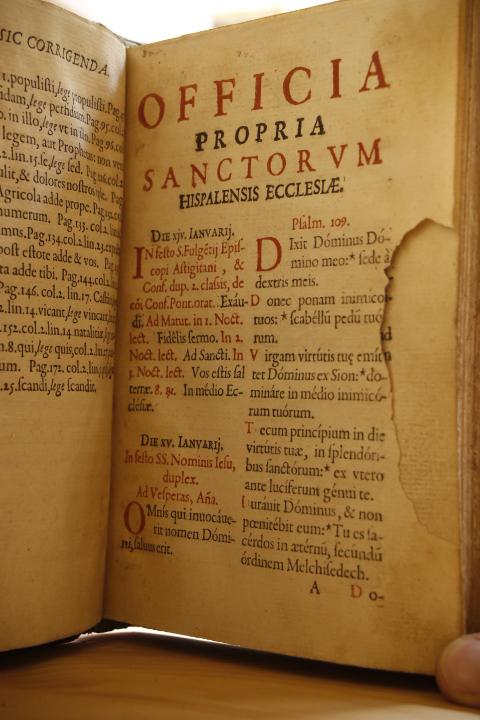 SIC CORRIGENDA.
1.populisti, lege populisti. Pag.
idam, lege perfidum. Pag. 95. col.
o. in illo, lege vt in illo. Pag. 96. co
legem, aut Prophetas: non ven
2. lin. 15. le, lege sed. Pag. 116. col. 2
ulit, & dolores nostros
Agricola adde prope. Pag. 192.
numerum. Pag. 133. col.
mns. Pag. 134. col. 2. lin. 23.
post estote adde & vos. Pag.
ta adde tibi. Pag. 144. col. 2. l
Pag. 146. col. 2. lin. 17.
2. lin. 14. vicant, lege vincant,
.152. col. 2. lin. 14. natalitia, lege
n. 8. qui, lege quis, col. 2. lin.
um. Pag. 172. col. 2. lin.
.25. scandi, lege scandit.
OFFICIA
PROPRIA
SANCTORVM
HISPALENSIS ECCLESIÆ.
DIE xjv. IANVARIJ.
IN festo S. Fulgẽtij Epis-
copi Astigitani, &
Conf. dup. 2. classis, de
cõi Conf. Pont. orat. Exáu-
di. Ad Matut. in 1. Noct.
lect. Fidélis sermo. In 2.
Noct. lect. Ad Sancti. In
3. Noct. lect. Vos estis sal
terræ. 8. &c. In médio Ec-
clésiæ.
DIE xv. IANVARIJ.
In festo SS. Nominis Iesu,
duplex.
Ad Vesperas, Aña.
OMnis qui inuocáue-
rit nomen Dómi-
ni, saluus erit.
Psalm. 109.
DIxit Dóminus Dó-
mino meo: * sede à
dextris meis.
Donec ponam inimicos
tuos: * scabéllũ pedũ tuó
rum.
Virgam virtútis tuę emit
tet Dóminus ex Sion: * do-
mináre in médio inimicó-
rum tuórum.
Tecum princípium in die
virtútis tuæ, in splendóri-
bus sanctórum: * ex vtero
ante lucíferum génui te.
Iuráuit Dóminus, & non
pœnitébit eum: * Tu es sa-
cérdos in ætérnũ, secúndũ
órdinem Melchisedech.
A Do-